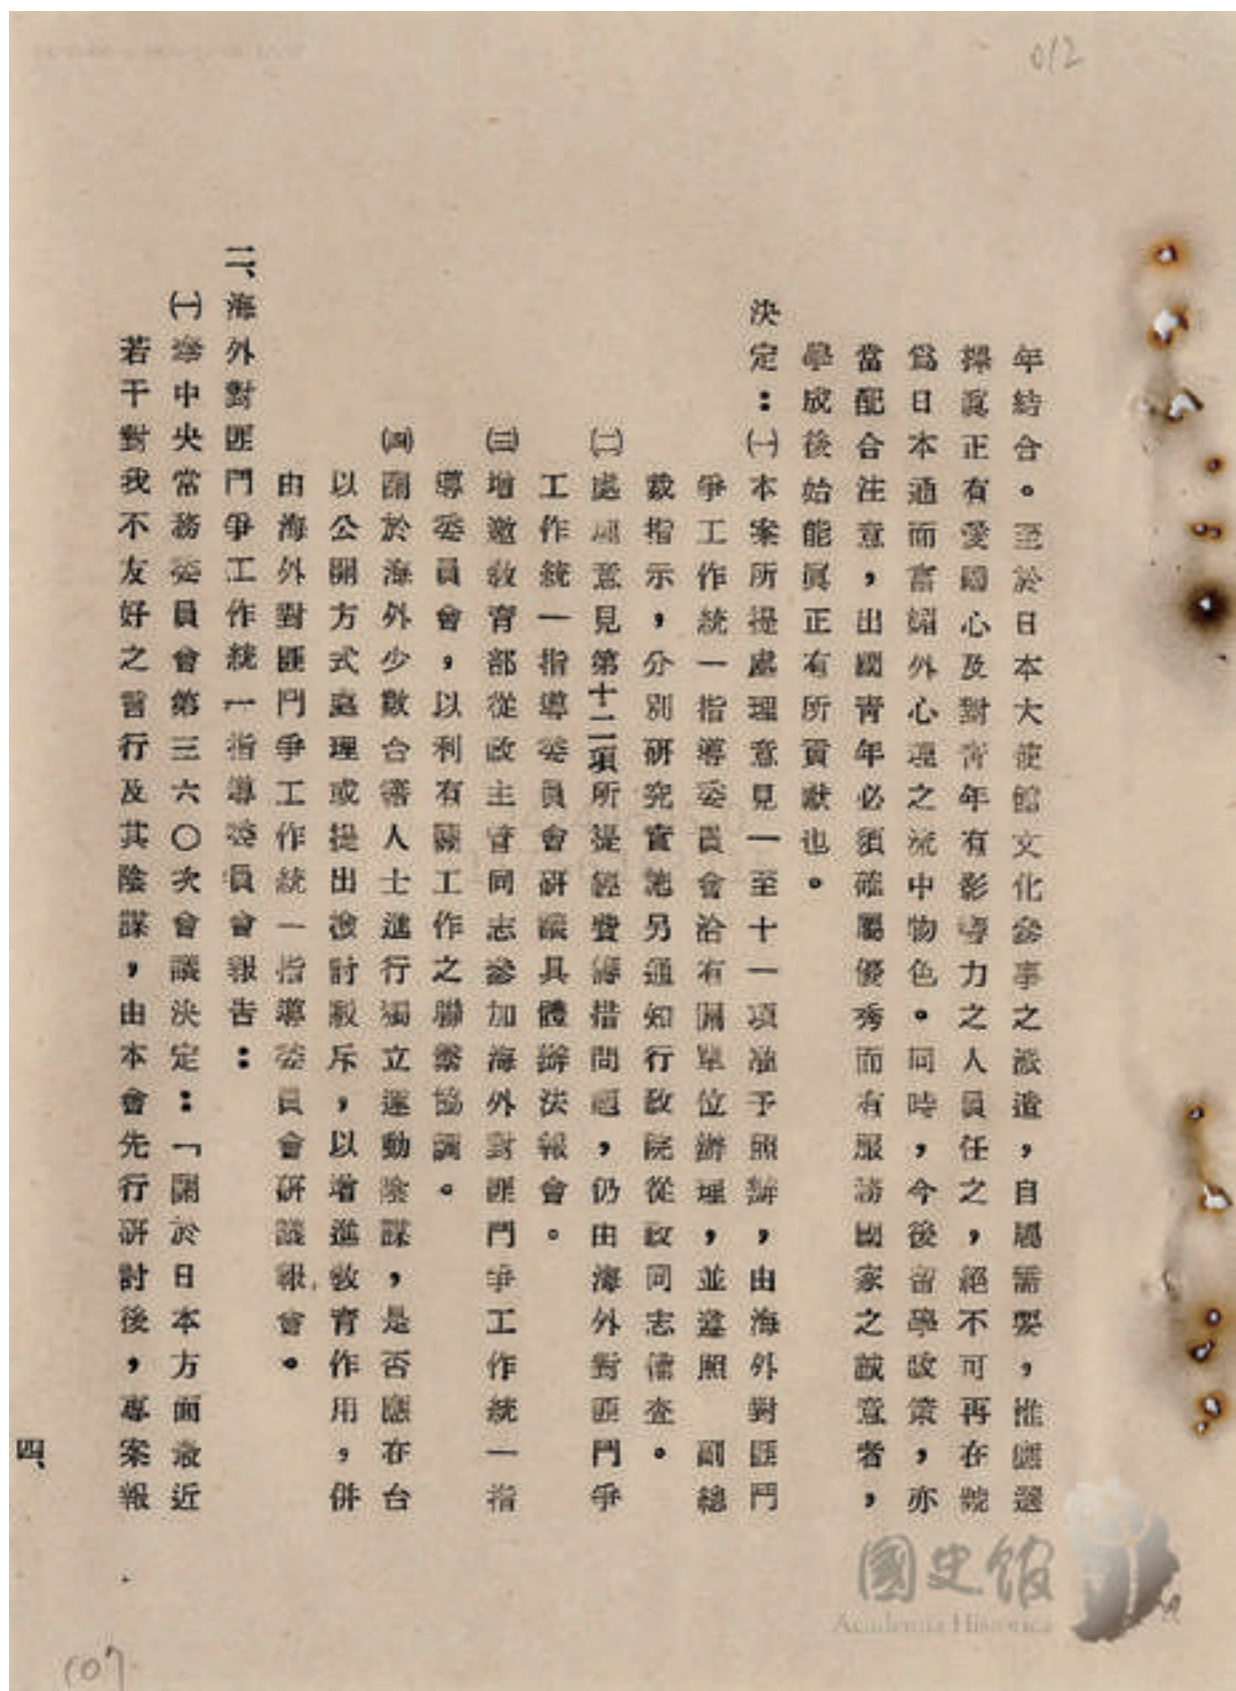 012
年結合。至於日本大使館文化參事之派遣,自屬需要,惟應選
擇眞正有愛國心及對青年有影響力之人員任之,絕不可再在號
爲日本通而富媚外心理之流中物色。同時,今後留學政策,亦
當配合注意,出國青年必須確屬優秀而有服務國家之誠意者,
學成後始能眞正有所貢獻也。
決定:㈠本案所提處理意見一至十一項准予照辦,由海外對匪鬥
爭工作統一指導委員會洽有關單位辦理,並遵照 副總
裁指示,分別研究實施另通知行政院從政同志
查。
㈡處理意見第十二項所提經費籌措問題,仍由海外對匪鬥爭
工作統一指導委員會研議具體辦法報會。
㈢增邀教育部從政主管同志參加海外對匪鬥爭工作統一指
導委員會,以利有關工作之聯繫協調。
㈣關於海外少數台籍人士進行獨立運動陰謀,是否應在台
以公開方式處理或提出檢討駁斥,以增進教育作用,併
由海外對匪鬥爭工作統一指導委員會研議報會。
二、海外對匪鬥爭工作統一指導委員會報告:
㈠奉中央常務委員會第三六〇次會議決定:「關於日本方面最近
若干對我不友好之言行及其陰謀,由本會先行研討後,專案報
四、
107
國史館
Academia Historica